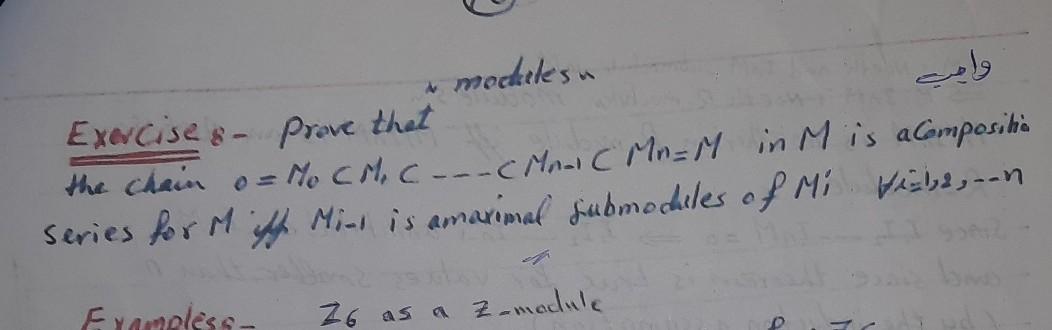 " modules "
واجب
Exercise :- Prove that
the chain 0 = M0 ⊂ M1 ⊂ --- ⊂ Mn-1 ⊂ Mn = M in M is a Composition
series for M iff Mi-1 is a maximal submodules of Mi ∀i=1,2,--n
Examples:- Z6 as a Z-module